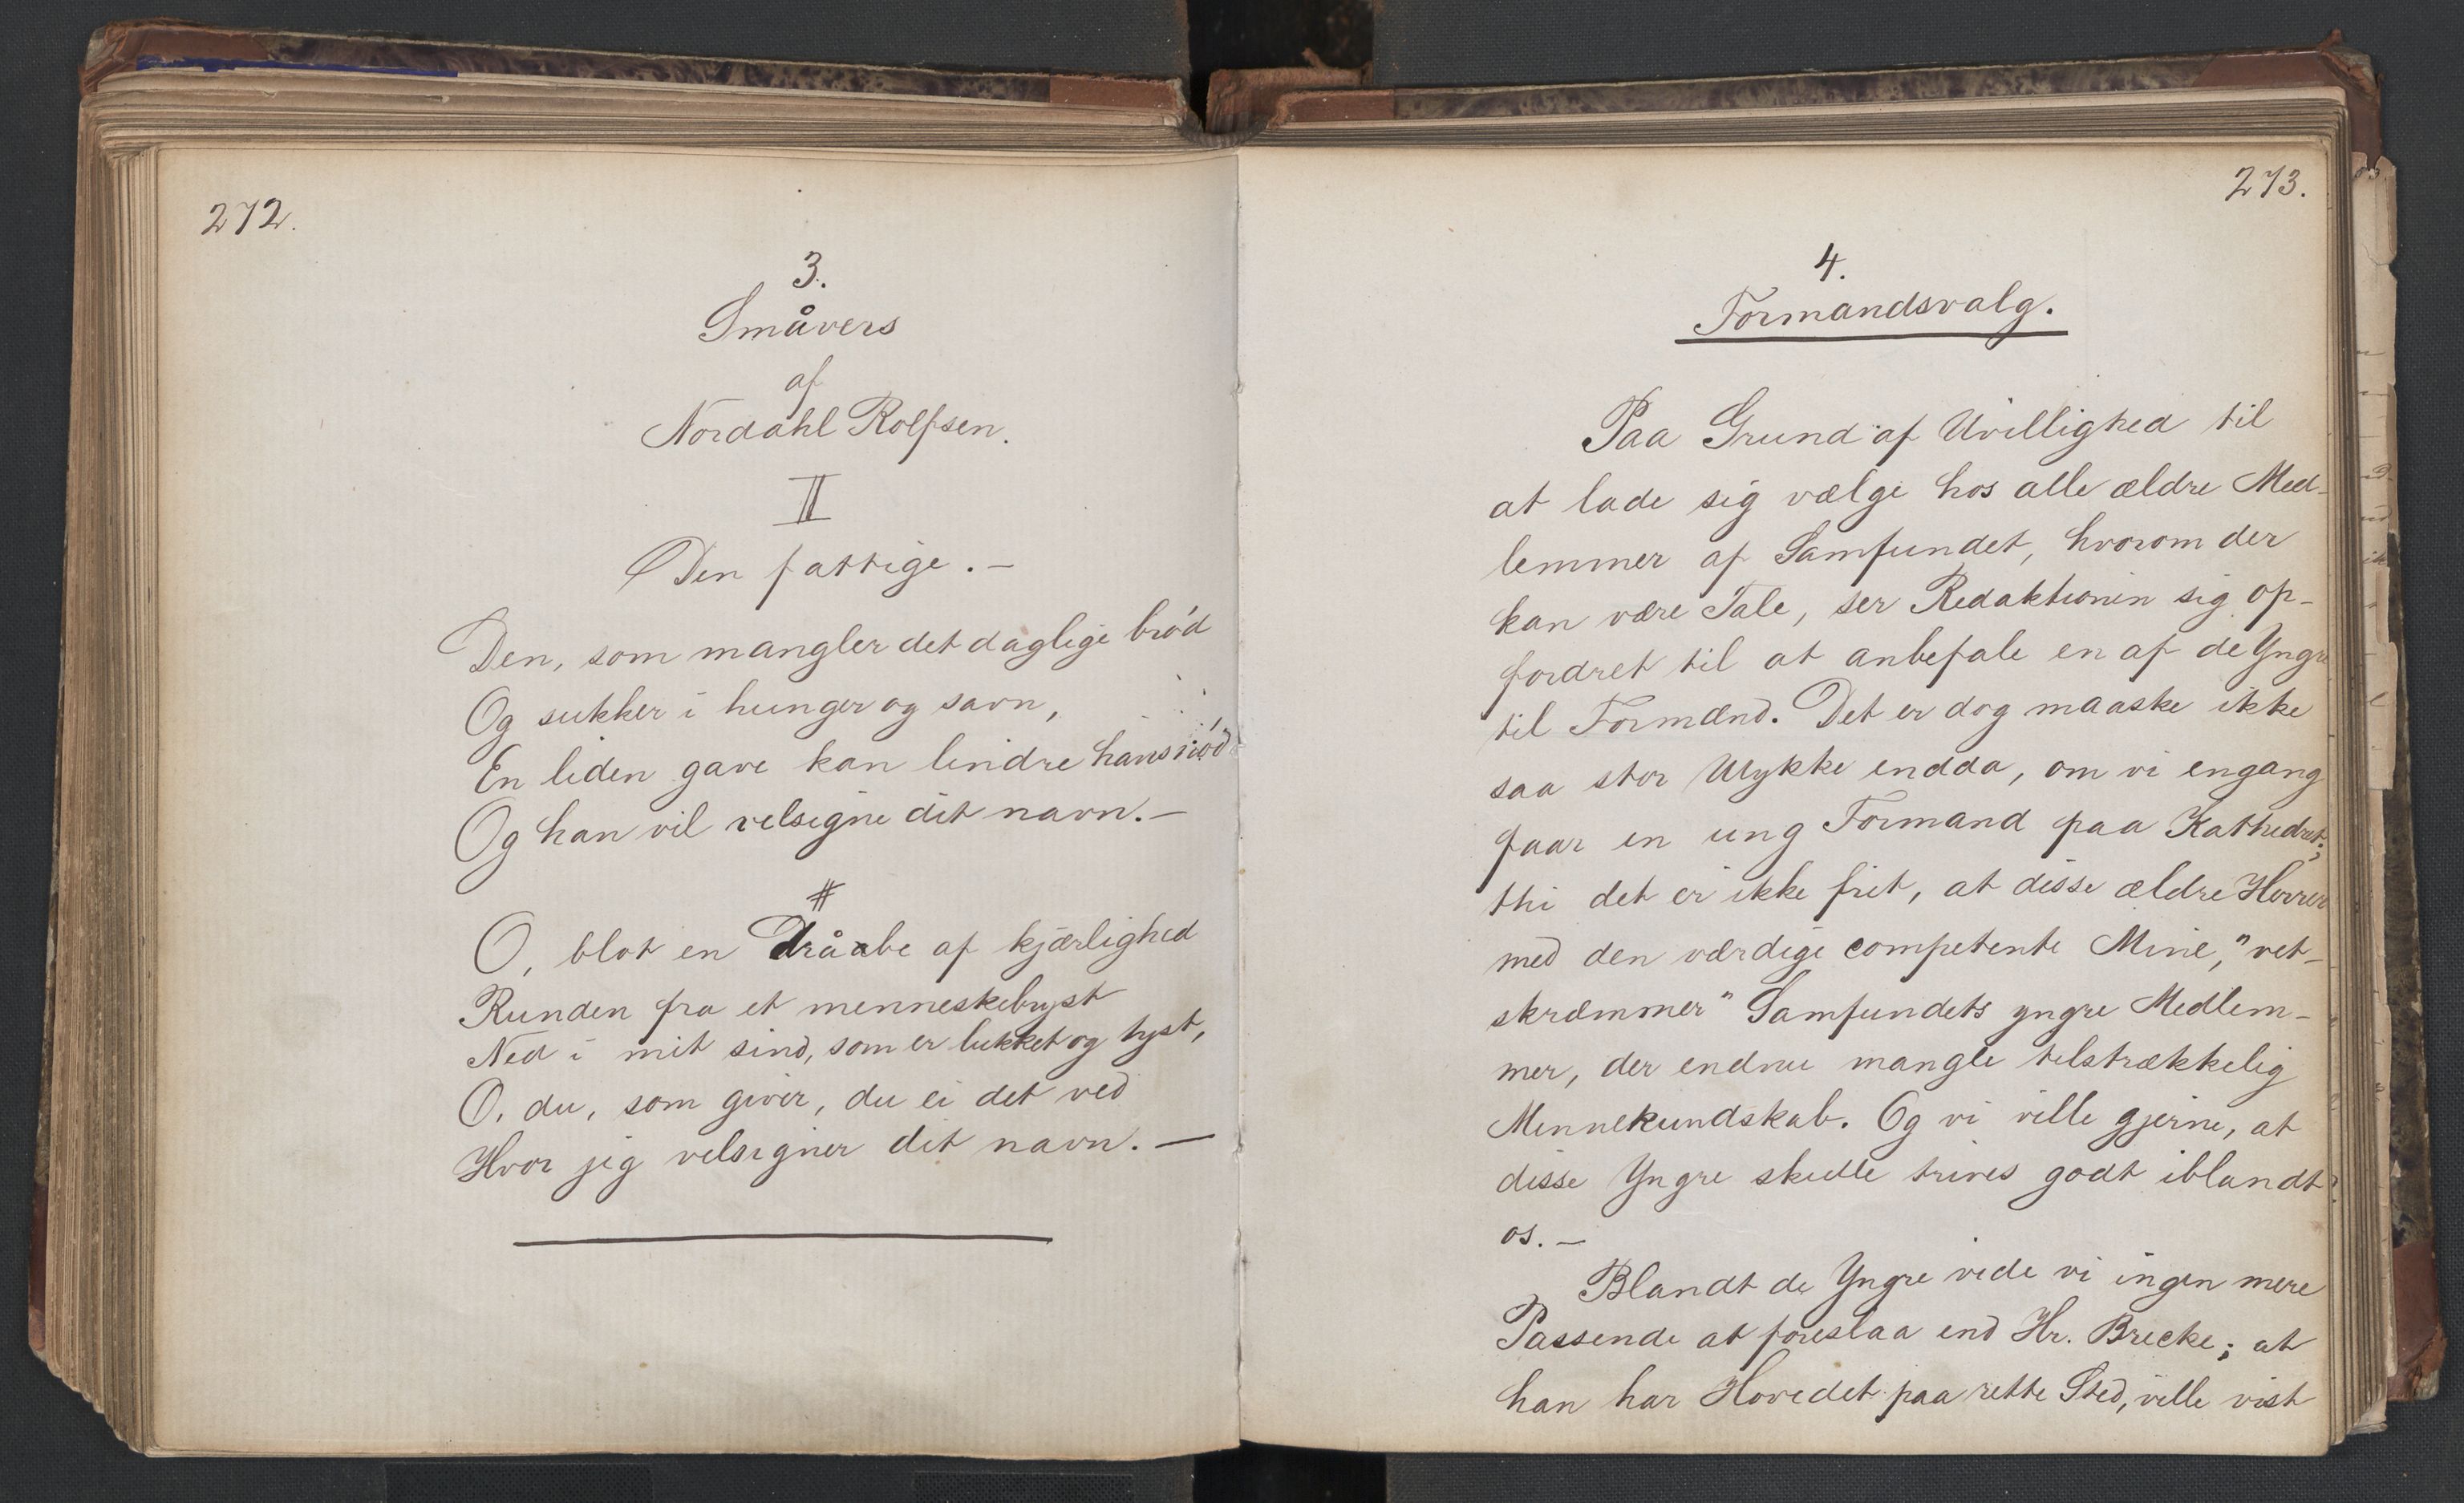 272.
3.
Småvers
af
Nordahl Rolfsen.
II
Den fattige. —
Den, som mangler det daglige brød
Og sukker i hunger og savn,
En liden gave kan lindre hans nød
Og han vil velsigne dit navn. —
#
O, blot en dråbe af kjærlighed
Runden fra et menneskebryst
Ned i mit sind, som er lukket og tyst,
O, du, som giver, du ei det ved
Hvor jeg velsigner dit navn. —
273.
4.
Formandsvalg.
Paa Grund af Uvillighed til
at lade sig vælge hos alle ældre Med-
lemmer af Samfundet, hvorom der
kan være Tale, ser Redaktionen sig op-
fordret til at anbefale en af de Yngre
til Formænd. Det er dog maaske ikke
saa stor Ulykke endda, om vi engang
faar en ung Formand paa Kathedret;
thi det er ikke frit, at disse ældre Herrer
med den værdige competente Mine, "vet-
skræmmer" Samfundets yngre Medlem-
mer, der endnu mangle tilstrækkelig
Minnekundskab. Og vi ville gjerne, at
disse Yngre skulle trives godt iblandt
os. —
Blandt de Yngre vide vi ingen mere
Passende at foreslaa end Hr. Brecke; at
han har Hovedet paa rette Sted, ville vist